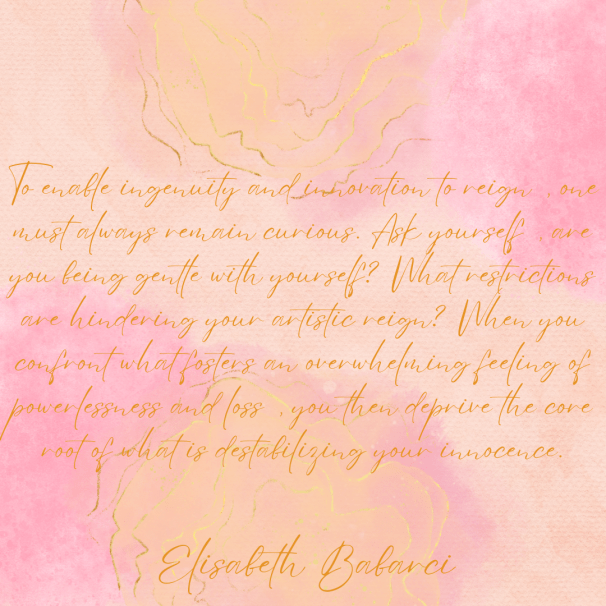 To enable ingenuity and innovation to reign , one
must always remain curious. Ask yourself , are
you being gentle with yourself? What restrictions
are hindering your artistic reign? When you
confront what fosters an overwhelming feeling of
powerlessness and loss , you then deprive the core
root of what is destabilizing your innocence.
Elisabeth Babarci